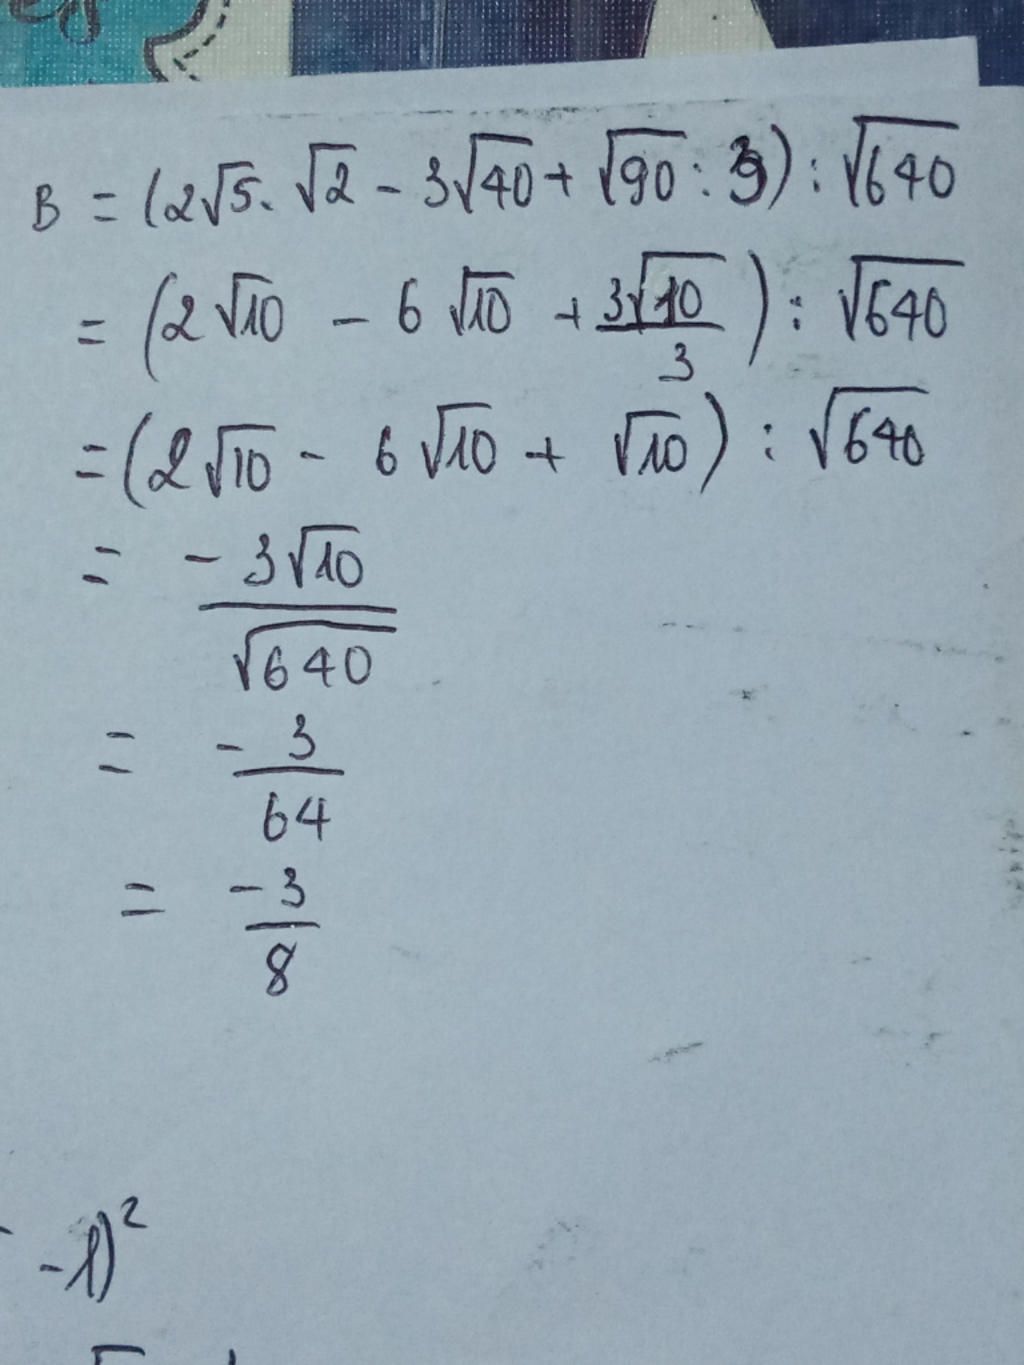 B = (2√5. √2 - 3√40 + √90 : 3) : √640
= (2√10 - 6√10 + 3√10/3) : √640
= (2√10 - 6√10 + √10) : √640
= -3√10/√640
= -3/64
= -3/8
-1)²